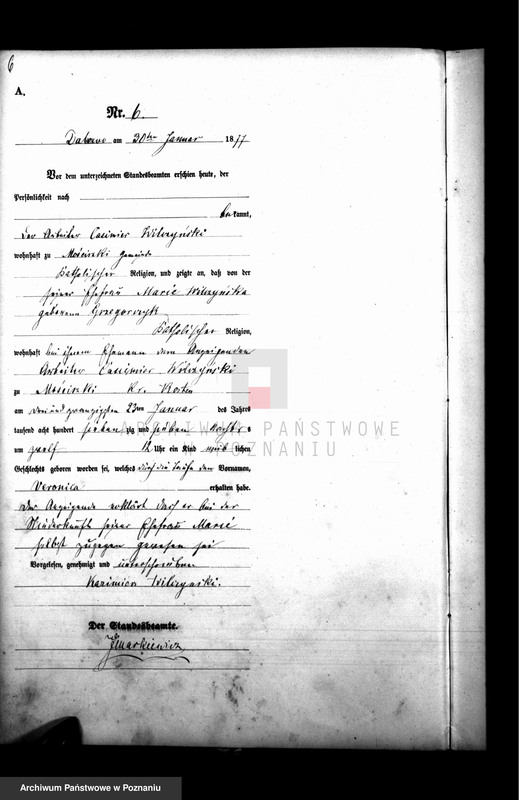 6
A.
Nr. 6.
am 30ten Januar 1877
Vor dem unterzeichneten Standesbeamten erschien heute, der
Persönlichkeit nach
bekannt,
Der Arbeiter Casimier Wilczyński
wohnhaft zu Mościszki Gemeinde
Katholischer Religion, und zeigte an, daß von der
seiner Ehefrau Marie Wilczyńska
geborenen Grzegorczyk
Katholischer Religion,
wohnhaft bei ihrem Ehemann dem Anzeigenden
Arbeiter Casimier Wilczyński
zu Mościszki Kr. Kosten
am drei und zwanzigsten 23ten Januar des Jahres
tausend acht hundert siebenzig und sieben Nachts
um zwölf 12 Uhr ein Kind weiblichen
Geschlechts geboren worden sei, welches durch die Taufe den Vornamen,
Veronica erhalten habe.
Der Anzeigende erklärt daß er bei der
Niederkunft seiner Ehefrau Marie
selbst zugegen gewesen sei
Vorgelesen, genehmigt und unterschrieben
Kazimier Wilczyński.
Der Standesbeamte.
Markiewicz
ARCHIWUM PAŃSTWOWE
W POZNANIU
Archiwum Państwowe w Poznaniu